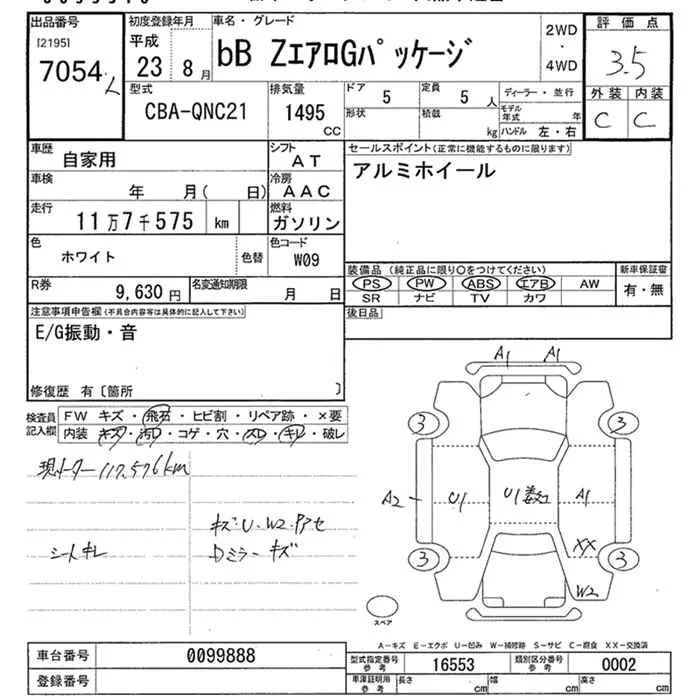 出品番号
[21951]
7054 L
初度登録年月
平成
23 8月
車名・グレード
bB ZエアロGパッケージ
2WD
・
4WD
評価点
3.5
外装 内装
C C
型式
CBA-QNC21
排気量
1495 CC
ドア 5
定員 5 人
形状
積載 kg
ディーラー・並行
モデル年式 年
ハンドル 左・右
車歴 自家用
シフト AT
車検 年 月( 日)
冷房 AAC
走行 11万7千575 km
燃料 ガソリン
色 ホワイト 色替
色コード W09
R券 9,630 円
名変通知期限 月 日
セールスポイント(正常に機能するものに限ります)
アルミホイール
装備品 (純正品に限り〇をつけてください)
PS PW ABS エアB AW
SR ナビ TV カワ
新車保証書
有・無
後日品
注意事項申告欄(不具合内容等は具体的に記入して下さい)
E/G振動・音
修復歴 有〔箇所 〕
検査員記入欄
FW キズ・飛石・ヒビ割・リペア跡・×要
内装 キズ・汚レ・コゲ・穴・スレ・キレ・破レ
現メーター 117,576km
キズ・U・W2・アセ
シートキレ
Dミラーキズ
A1 A1
3 3
A2 U1 U1数コ A1
XX
3 3
W2
スペア
A-キズ E-エクボ U-凹み W-補修跡 S-サビ C-腐食 XX-交換済
車台番号 0099888
登録番号
型式指定番号 参考 16553
類別区分番号 参考 0002
車庫証明用 参考 長さ cm 幅 cm 高さ cm